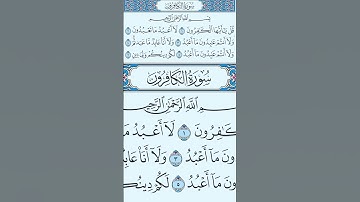 سُورَةُ الكَافِرُونَ
بِسْمِ اللَّهِ الرَّحْمَٰنِ الرَّحِيمِ
قُلْ يَٰٓأَيُّهَا ٱلْكَٰفِرُونَ ١ لَآ أَعْبُدُ مَا تَعْبُدُونَ ٢
وَلَآ أَنتُمْ عَٰبِدُونَ مَآ أَعْبُدُ ٣ وَلَآ أَنَا۠ عَابِدٌ مَّا عَبَدتُّمْ ٤
وَلَآ أَنتُمْ عَٰبِدُونَ مَآ أَعْبُدُ ٥ لَكُمْ دِينُكُمْ وَلِيَ دِينِ ٦
سُورَةُ الكَافِرُونَ
بِسْمِ اللَّهِ الرَّحْمَٰنِ الرَّحِيـ
ـكَٰفِرُونَ ١ لَآ أَعْبُدُ مَا
ونَ مَآ أَعْبُدُ ٣ وَلَآ أَنَا۠ عَابِـ
ونَ مَآ أَعْبُدُ ٥ لَكُمْ دِينُكُـ